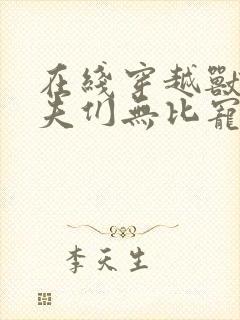 在綫穿越獸
夫们無比寵
李天生